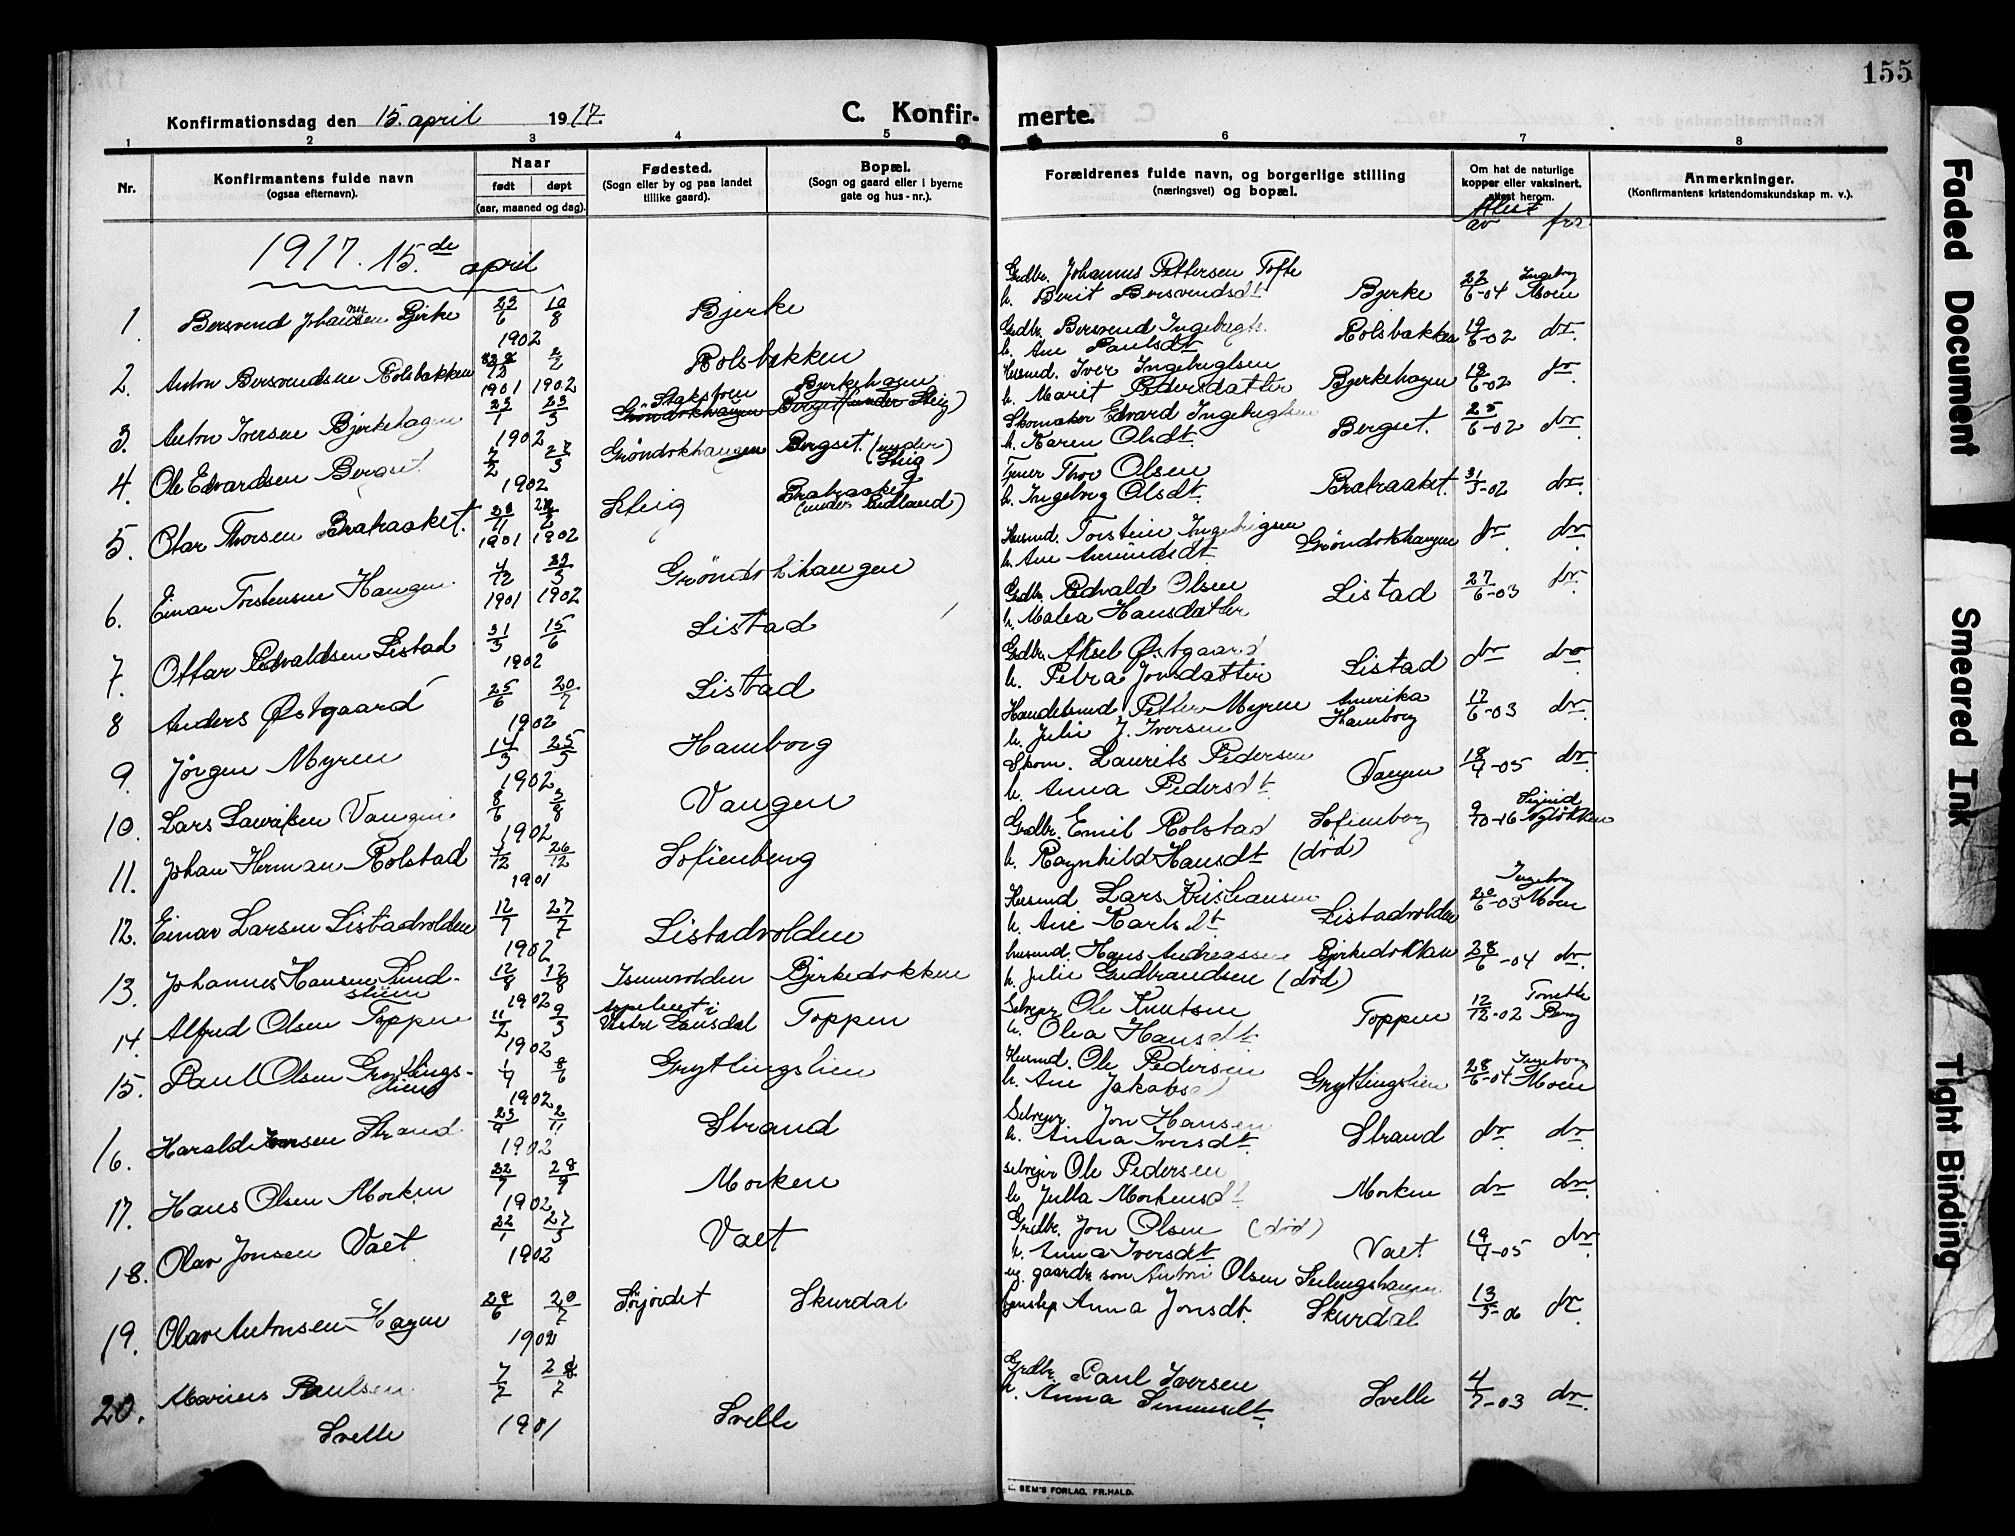 155
Konfirmationsdag den 15. april 1917.
C. Konfir-
merte.
1 2 3 4 5 6 7 8
Nr.
Konfirmantens fulde navn
(ogsaa efternavn).
Naar
født døpt
(aar, maaned og dag).
Fødested.
(Sogn eller by og paa landet
tillike gaard).
Bopæl.
(Sogn og gaard eller i byerne
gate og hus-nr.).
Forældrenes fulde navn, og borgerlige stilling
(næringsvei) og bopæl.
Om hat de naturlige
kopper eller vaksinert.
attest herom.
Attest
av fra
Anmerkninger.
(Konfirmantens kristendomskundskap m. v.).
1917. 15.de april
1. Bersvend Johannesen Bjerke 23/6 10/8 1902 Bjerke
Grdbr. Johannes Pettersen Tofte
h. Berit Bersvendsdt Bjerke 22/6-04 Ingeborg Moen
2. Anton Bersvendsen Rolsbakken 2/2 1901 1902 Rolsbakken
Grdbr. Bersvend Ingebrigts.
h. Ane Paulsdt Rolsbakken 19/6-02 do.
3. Anton Iversen Bjerkehagen 23/1 23/3 1902 Stakstoen Bjerkehagen
Grøndokhaugen Berget (under Steig)
Husmd. Iver Ingebrigtsen
h. Marit Pedersdatter Bjerkehagen 19/6-02 do.
4. Ole Edvardsen Bergset 7/2 27/3 1902 Grøndokhaugen Bergset. (under Steig)
Skomaker Edvard Ingebrigtsen
h. Karen Olsdt. Bergset. 25/6-02 do.
5. Olar Thorsen Brataaket. 1901 1902 Steig Brataaket (under Sudland)
Tjener Thor Olsen
h. Ingeborg Olsdt. Brataaket. 31/5-02 do.
6. Einar Torstensen Haugen 4/12 23/3 1901 1902 Grøndokhaugen
Husmd. Torstein Ingebrigsen
h. Ane Amundsdt. Grøndokhaugen do do.
7. Ottar Redvaldsen Listad 31/3 15/6 1902 Listad
Grdbr. Redvald Olsen
h. Malea Hansdatter Listad 27/6-03 do.
8 Anders Østgaard 25/6 20/7 1902 Listad
Grdbr. Aksel Østgaard
h. Petra Jonsdatter Listad do do
9. Jørgen Myren 14/3 25/5 1902 Hamborg
Handelsmd Petter Myren Amerika
h. Julie J. Iversen Hamborg 17/6-03 do.
10. Lars Lauritsen Vangen 8/6 3/8 1902 Vangen
Skom. Laurits Pedersen
h. Anna Pedersdt. Vangen 18/4-05 do.
11. Johan Herman Rolstad 7/12 26/12 1901 Sofienberg
Grdbr. Emil Rolstad Sofienborg 9/10-16 Sigrid Nyløkken
h. Ragnhild Hansdt (død)
12. Einar Larsen Listadvolden 12/7 27/7 1902 Listadvolden
Husmd Lars Kristiansen
h. Ane Karlsdt Listadvolden 20/6-03 Ingeborg Moen
13. Johannes Hansen Sund-
stuen 12/8 17/8 1902 Isumvolden Bjerkedokken
husmd. Hans Andreassen Bjerkedokken 28/6-04 do.
h. Julie Gudbrandsen (død)
14. Alfred Olsen Toppen 11/2 9/3 1902 Vestre Gausdal Toppen
Selveier Ole Knutsen
h. Olea Hansdt. Toppen 12/12-02 Torette Berg
15. Paul Olsen Grytlings-
lien 1/4 8/6 1902 Grytlingslien
Husmd. Ole Pedersen
h. Ane Jakobsd Gryttingslien 28/6-04 Ingeborg Moen
16. Harald Jonsen Strand 23/9 2/11 1902 Strand
Selveier Jon Hansen
h. Anna Iversdt. Strand do do.
17. Hans Olsen Morken 22/7 28/9 1902 Morken
selveier Ole Pedersen
h. Julla Mortensdt Morken do do.
18. Olav Jonsen Vaet 22/1 27/3 1902 Vaet
Grdbr. Jon Olsen (død)
h. Anna Iversdt Vaet 19/4-05 do.
19. Olav Antonsen Hagen 28/6 20/7 1902 Sørjordet Skurdal
ug. gaardm. søn Anton Olsen Selungshaugen
Anna Jonsdt. Skurdal 13/5-06 do.
20. Marius Paulsen
Svelle 7/7 28/7 1901 Svelle
Grdbr. Paul Iversen
h. Anna Simensdt. Svelle 4/7-03 do.
SEM'S FORLAG. FR.HALD.
Faded Document
Smeared Ink
Tight Binding